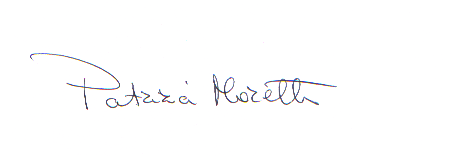 Patrizia Moretti